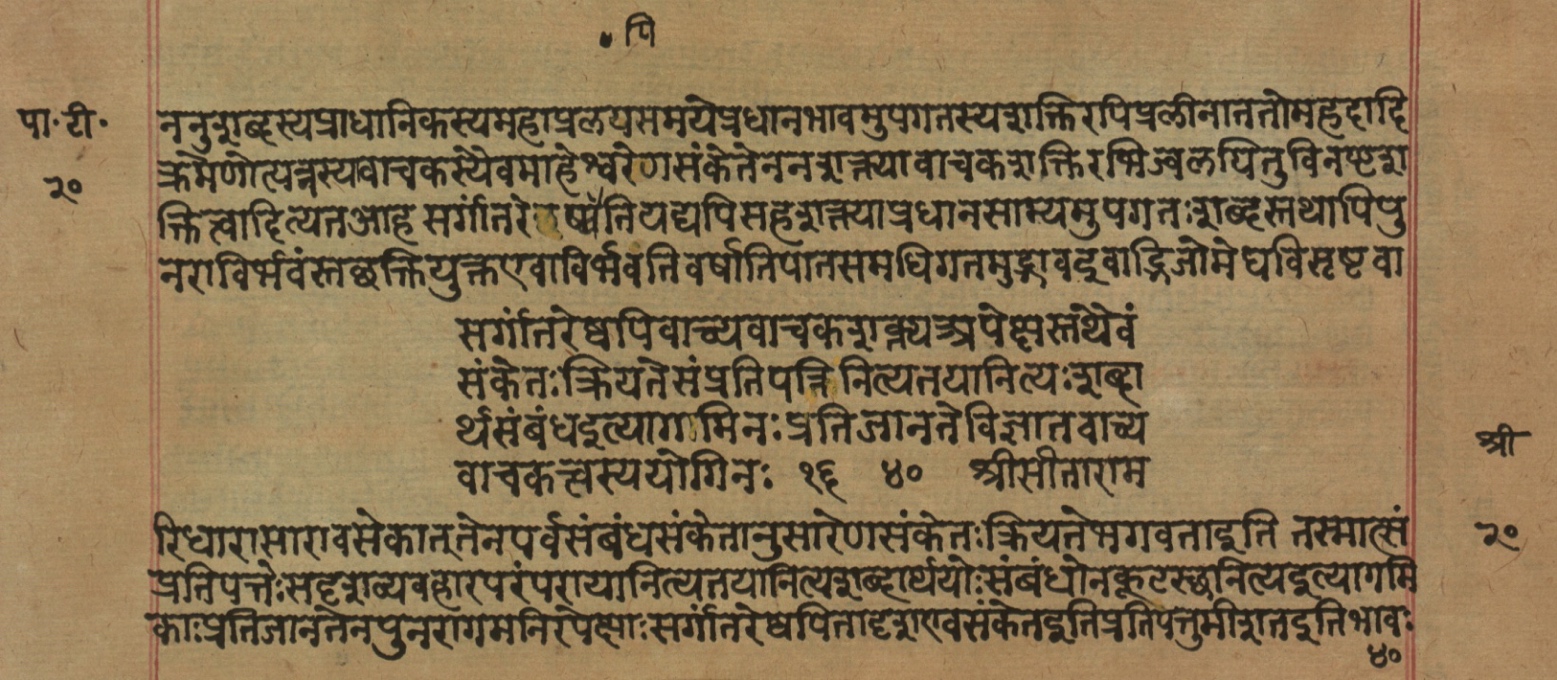 पि
पा॰ टी॰
२०
ननुशब्दस्यप्राधानिकस्यमहाप्रलयसमयेप्रधानभावमुपगतस्यशक्तिरपिप्रलीनाततोमहदादि
क्रमेणोत्पन्नस्यवाचकस्यैवमाहेश्वरेणसंकेतेननशक्त्यावाचकशक्तिरभिज्वलयितुविनष्टश
क्तित्वादित्यतआह सर्गांतरेष्वपीतियद्यपिसहशक्त्याप्रधानसाम्यमुपगतःशब्दस्तथापिपु
नराविर्भवंस्तछक्तियुक्तएवाविर्भवतिवर्षातिपातसमधिगतमृद्भावइवोद्भिजोमेघविसृष्टवा
सर्गांतरेष्वपिवाच्यवाचकशक्त्यअपेक्षस्तथैवं
संकेतःक्रियतेसंप्रतिपत्तिनित्यतयानित्यःशब्दा
र्थसंबंधइत्यागामिनःप्रतिजानतेविज्ञातवाच्य
वाचकत्वस्ययोगिनः १६ ४० श्रीसीताराम
श्री
रिधारासारावसेकात्तेनपर्वसंबंधसंकेतानुसारेणसंकेतःक्रियतेभगवताइति तस्मात्सं
२०
प्रतिपत्तेःसदृशव्यवहारपरंपरायानित्यतयानित्यशब्दार्थयोःसंबंधोनकूटस्छनित्यइत्यागमि
काःप्रतिजानतेनपुनरागमनिरपेक्षाःसर्गांतरेष्वपितादृशएवसंकेतइतिप्रतिपत्तुमीशतइतिभावः
४०